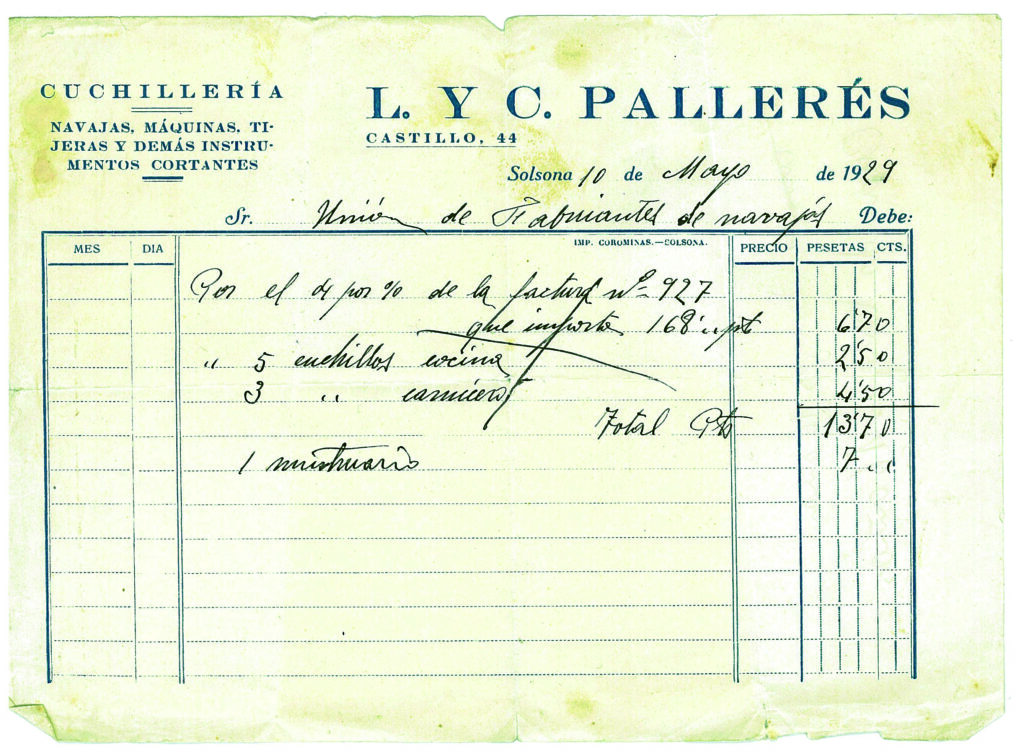 CUCHILLERÍA
NAVAJAS, MÁQUINAS, TI-
JERAS Y DEMÁS INSTRU-
MENTOS CORTANTES
L. Y C. PALLERÉS
CASTILLO, 44
Solsona 10 de Mayo de 1929
Sr. Unión de Fabricantes de navajas Debe:
MES DIA IMP. COROMINAS.—SOLSONA. PRECIO PESETAS CTS.
Por el 4 por % de la factura nº 927
que importa 168 ,, pt 6'70
" 5 cuchillos cocina 2'50
3 " carnicero 4'50
Total Pts 13'70
1 mustuario 7 ,,